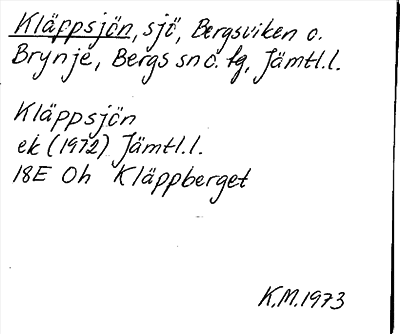 Kläppsjön, sjö, Bergsviken o.
Brynje, Bergs sn o. tg, Jämtl.l.
Kläppsjön
ek (1972) Jämtl.l.
18E Oh Kläppberget
K.M.1973